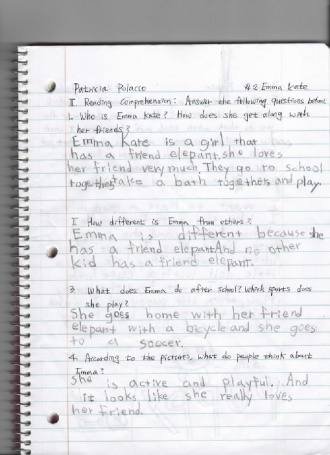 Patricia Polacco #2 Emma Kate
I. Reading Comprehension: Answer the following questions below.
1. Who is Emma Kate? How does she get along with
her friends?
Emma Kate is a girl that
has a friend elepant. she loves
her friend very much. They go to school
together, take a bath togethers and play.
I How different is Emma from others?
Emma is different because she
has a friend elepant. And no other
kid has a friend elepant.
3. What does Emma do after school? Which sports does
she play?
She goes home with her friend
elepant with a bicycle and she goes
to a soccer.
4. According to the pictures, what do people think about
Emma?
She is active and playful. And
it looks like she really loves
her friend.